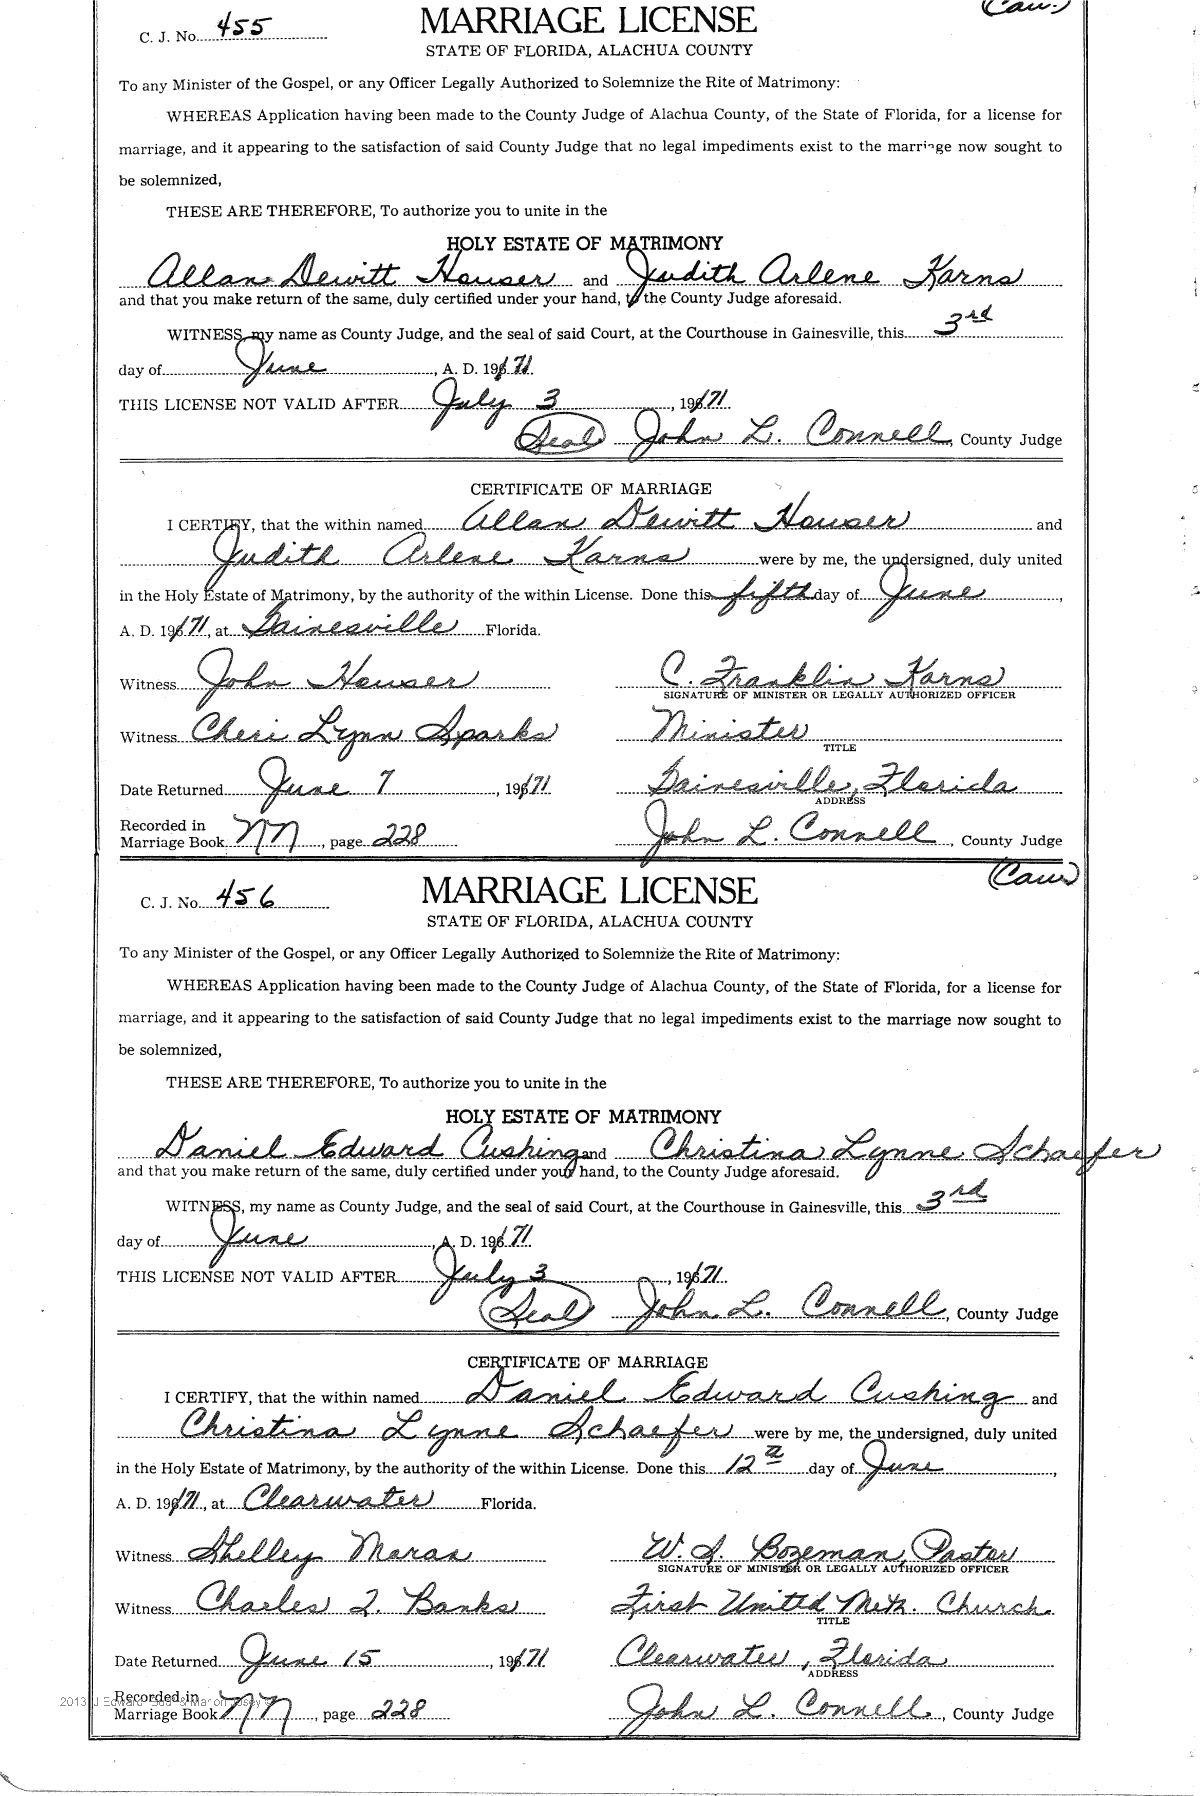 (Cau.)
C. J. No. 455
MARRIAGE LICENSE
STATE OF FLORIDA, ALACHUA COUNTY
To any Minister of the Gospel, or any Officer Legally Authorized to Solemnize the Rite of Matrimony:
WHEREAS Application having been made to the County Judge of Alachua County, of the State of Florida, for a license for
marriage, and it appearing to the satisfaction of said County Judge that no legal impediments exist to the marriage now sought to
be solemnized,
THESE ARE THEREFORE, To authorize you to unite in the
HOLY ESTATE OF MATRIMONY
Allan Dewitt Houser and Judith Arlene Karns
and that you make return of the same, duly certified under your hand, to the County Judge aforesaid.
WITNESS, my name as County Judge, and the seal of said Court, at the Courthouse in Gainesville, this 3rd
day of June, A. D. 1971.
THIS LICENSE NOT VALID AFTER July 3, 1971.
(Seal) John L. Connell, County Judge
CERTIFICATE OF MARRIAGE
I CERTIFY, that the within named Allan Dewitt Houser and
Judith Arlene Karns were by me, the undersigned, duly united
in the Holy Estate of Matrimony, by the authority of the within License. Done this fifth day of June,
A. D. 1971, at Gainesville Florida.
Witness John Houser C. Franklin Karns
SIGNATURE OF MINISTER OR LEGALLY AUTHORIZED OFFICER
Witness Cheri Lynn Sparks Minister
TITLE
Date Returned June 7, 1971. Gainesville, Florida
ADDRESS
Recorded in
Marriage Book NN, page 228 John L. Connell, County Judge
(Cau)
C. J. No. 456
MARRIAGE LICENSE
STATE OF FLORIDA, ALACHUA COUNTY
To any Minister of the Gospel, or any Officer Legally Authorized to Solemnize the Rite of Matrimony:
WHEREAS Application having been made to the County Judge of Alachua County, of the State of Florida, for a license for
marriage, and it appearing to the satisfaction of said County Judge that no legal impediments exist to the marriage now sought to
be solemnized,
THESE ARE THEREFORE, To authorize you to unite in the
HOLY ESTATE OF MATRIMONY
Daniel Edward Cushing and Christina Lynne Schaefer
and that you make return of the same, duly certified under your hand, to the County Judge aforesaid.
WITNESS, my name as County Judge, and the seal of said Court, at the Courthouse in Gainesville, this 3rd
day of June, A. D. 1971.
THIS LICENSE NOT VALID AFTER July 3, 1971.
(Seal) John L. Connell, County Judge
CERTIFICATE OF MARRIAGE
I CERTIFY, that the within named Daniel Edward Cushing and
Christina Lynne Schaefer were by me, the undersigned, duly united
in the Holy Estate of Matrimony, by the authority of the within License. Done this 12th day of June,
A. D. 1971, at Clearwater Florida.
Witness Shelley Maras W. S. Bozeman, Pastor
SIGNATURE OF MINISTER OR LEGALLY AUTHORIZED OFFICER
Witness Charles I. Banks First United Meth. Church.
TITLE
Date Returned June 15, 1971 Clearwater, Florida
ADDRESS
Recorded in
Marriage Book NN, page 228 John L. Connell, County Judge
2013 J Edward